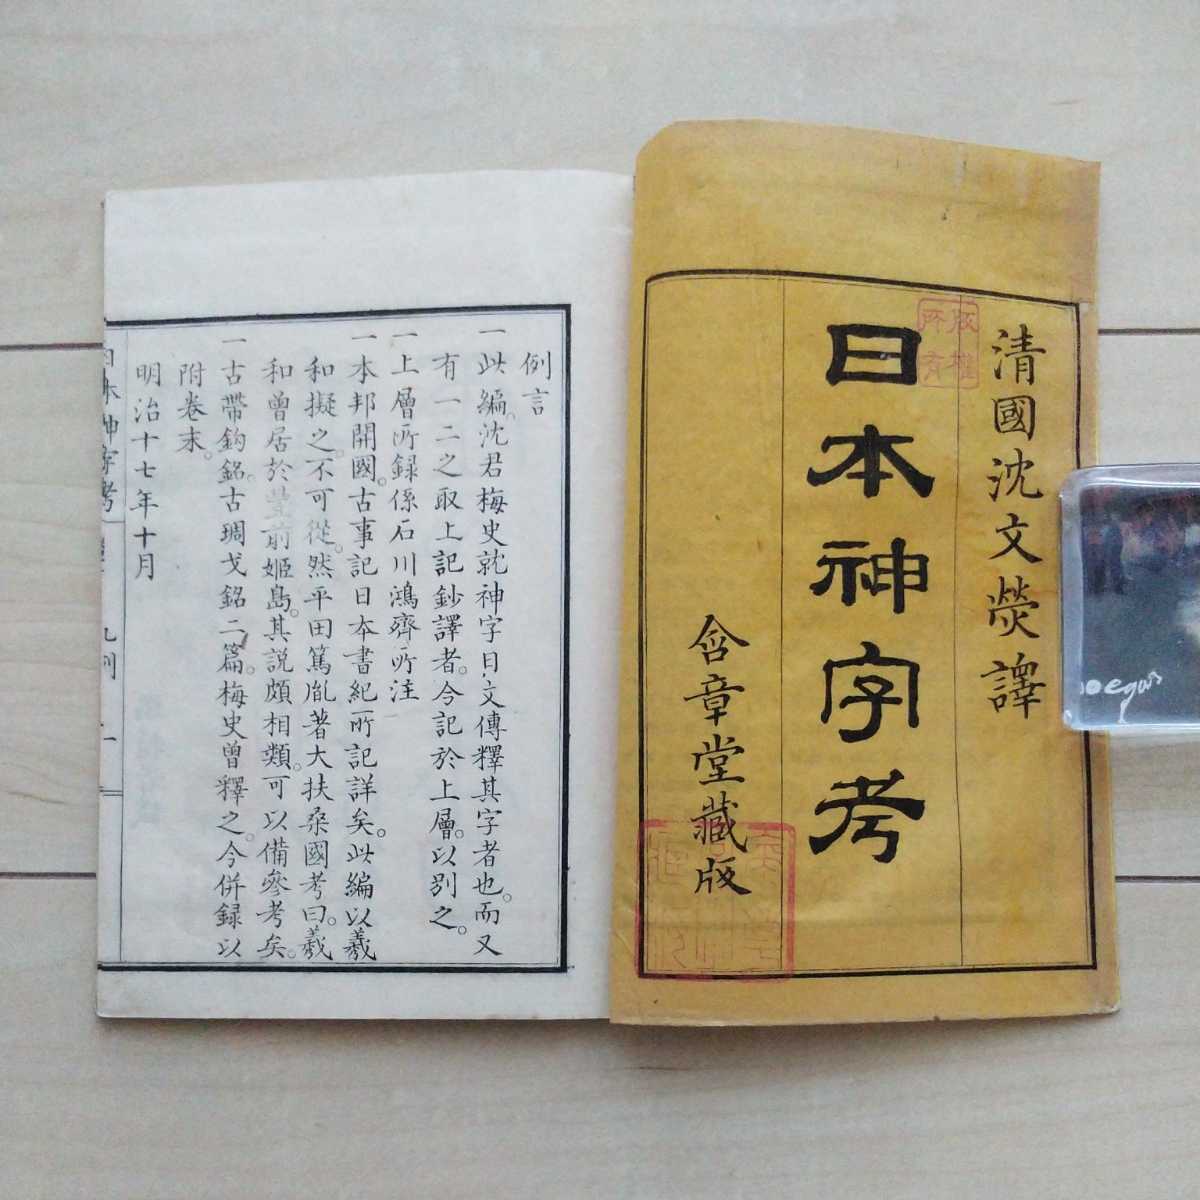 清國沈文熒譯
版權所有
日本神字考
含章堂藏版
例言
一此編。沈君梅史就神字日文傳釋其字者也。而又
有一二之取上記鈔譯者。今記於上層。以別之。
一上層所録係石川鴻齊所注
一本邦開國。古事記日本書紀所記詳矣。此編以羲
和擬之。不可從。然平田篤胤著大扶桑國考曰。羲
和曾居於豊前姬島。其説頗相類。可以備參考矣。
一古帶鈎銘。古琱戈銘二篇。梅史曾釋之。今併録以
附卷末。
明治十七年十月
日本神字考